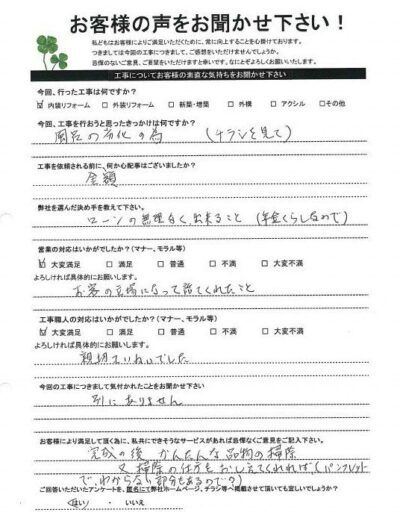 お客様の声をお聞かせ下さい！
私どもはお客様によりご満足いただくために、常に向上することを心掛けております。
つきましては今回の工事につきまして、ご感想をいただけませんでしょうか。
忌憚のないご意見、ご要望をいただけますと幸いです。なにとぞよろしくお願いいたします。
工事についてお客様の素直な気持ちをお聞かせ下さい
今回、行った工事は何ですか？
☑ 内装リフォーム □ 外装リフォーム □ 新築・増築 □ 外構 □ アクシル □その他
今回、工事を行おうと思ったきっかけは何ですか？
風呂の劣化の為 （チラシを見て）
工事を依頼される前に、何か心配事はございましたか？
金額
弊社を選んだ決め手を教えて下さい。
ローンの無理なく出来ること（年金くらしなので）
営業の対応はいかがでしたか？（マナー、モラル等）
☑ 大変満足 □ 満足 □ 普通 □ 不満 □ 大変不満
よろしければ具体的にお願いします。
お客の立場になって話てくれたこと
工事職人の対応はいかがでしたか？（マナー、モラル等）
☑ 大変満足 □ 満足 □ 普通 □ 不満 □ 大変不満
よろしければ具体的にお願いします。
親切ていねいでした
今回の工事につきまして気付かれたことをお聞かせ下さい
別にありません
お客様により満足して頂く為に、私共にできそうなサービスがあれば忌憚なくご意見をご記入下さい。
完成の後 かんたんな品物の掃除
又掃除の仕方をおしえてくれれば、（パンフレット
で、わからない部分もあるので？）
ご回答いただいたアンケートを、匿名にて弊社ホームページ、チラシ等へ掲載させて頂いても宜しいでしょうか？
はい ・ いいえ